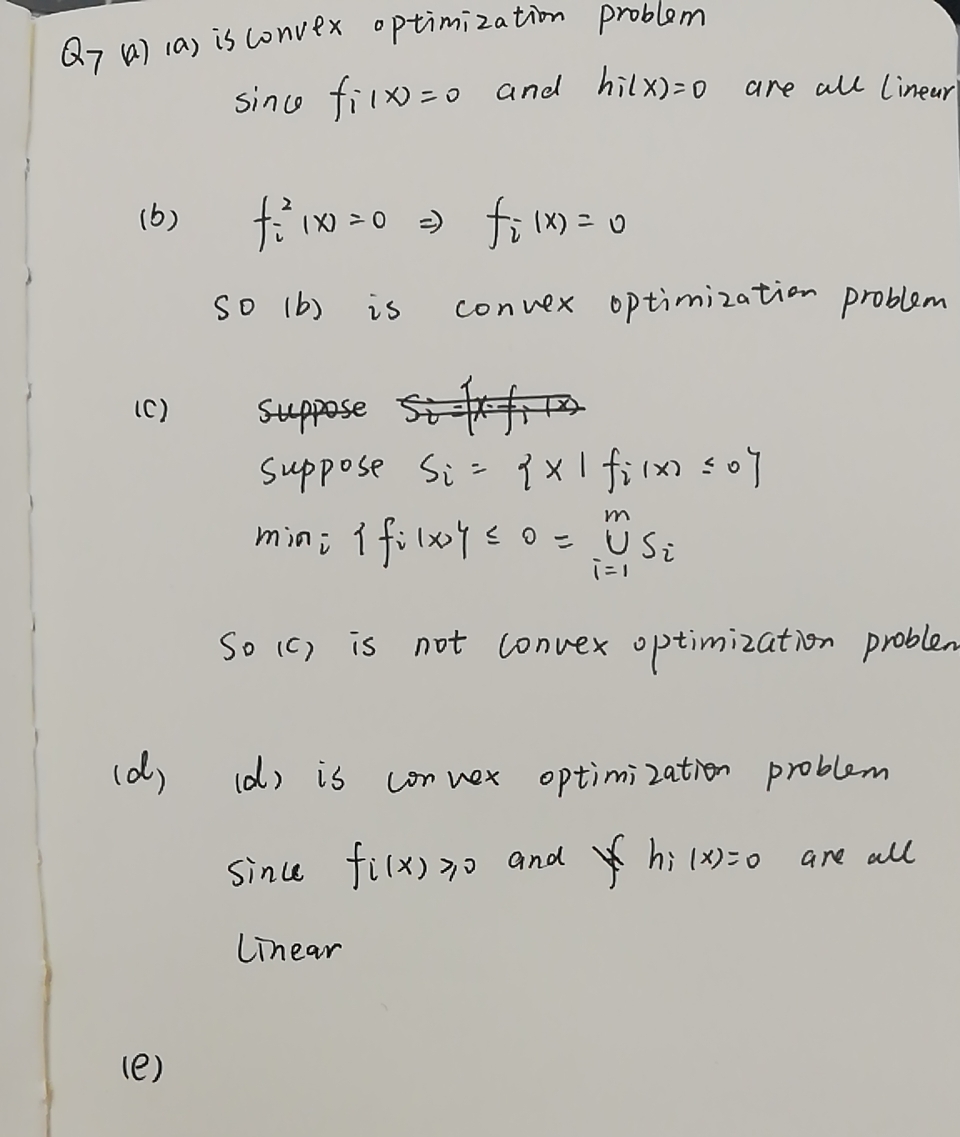 Q7 (a) (a) is convex optimization problem
since fᵢ(x)=0 and hi(x)=0 are all linear
(b) fᵢ²(x)=0 ⇒ fᵢ(x)=0
so (b) is convex optimization problem
(c) suppose Sᵢ={x-fᵢ(x)
suppose Sᵢ = {x | fᵢ(x) ≤ 0}
minᵢ {fᵢ(x)} ≤ 0 = ⋃ᵢ₌₁ᵐ Sᵢ
So (c) is not convex optimization problem
(d) (d) is convex optimization problem
since fᵢ(x) ≥ 0 and hᵢ(x)=0 are all
Linear
(e)